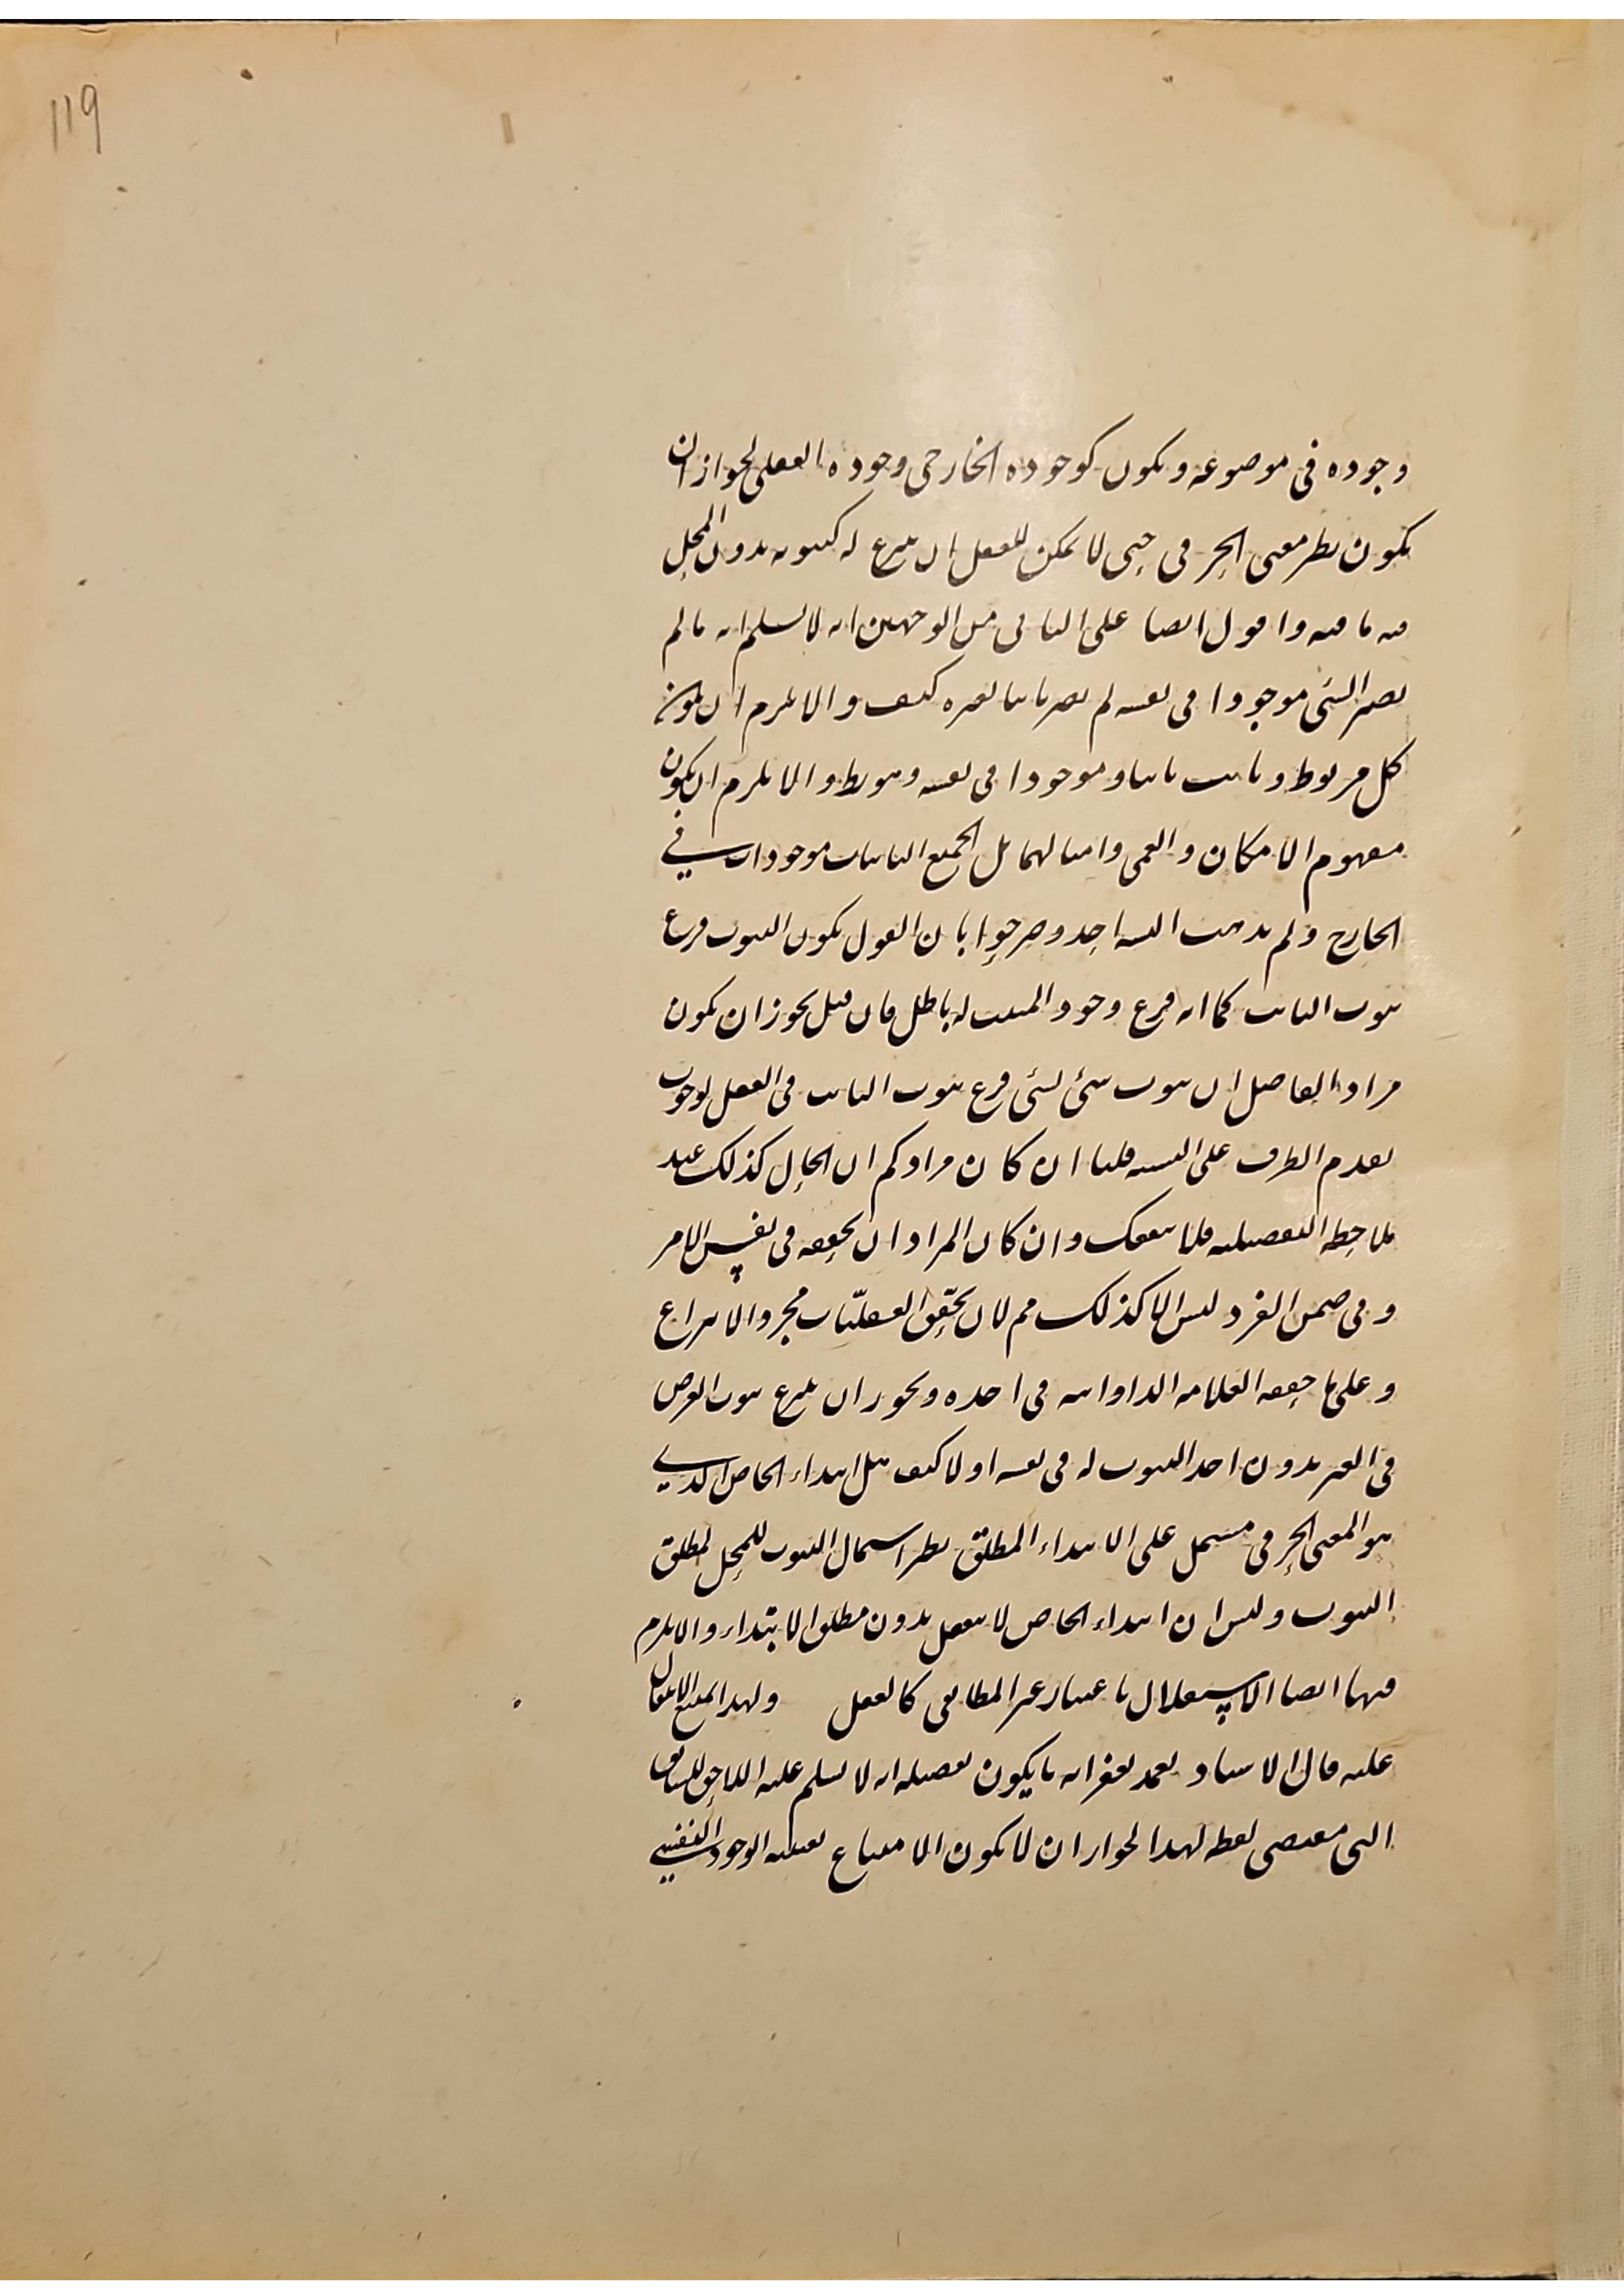 119
وجوده فى موضوعه ويكون كوجوده الخارجى وجوده العقلى لجواز ان
يكون نظر معنى الحرفى حتى لا يمكن للعقل ان ينتزع له كينونه بدون المحل
فيه ما فيه واقول ايضا على الثانى من الوجهين انه لا نسلم انه ما لم
يصر الشئ موجودا فى نفسه لم يصر ثابتا لغيره كيف والا يلزم ان يكون
كل مربوط وثابت ثابتا وموجودا فى نفسه وهو ربط والا يلزم ان يكون
مفهوم الامكان والعمى وامثالهما بل الجميع الثابتات موجودات فى
الخارج ولم يذهب اليه احد وصرحوا بان القول بكون الثبوت فرع
ثبوت الثابت كما انه فرع وجود المثبت له باطل فان قيل يجوز ان يكون
مراد الفاضل ان ثبوت شئ لشئ فرع ثبوت الثابت فى العقل لوجوب
تقدم الطرف على النسبه قلنا ان كان مرادكم ان الحال كذلك عند
ملاحظه التفصيليه فلا ينفعك وان كان المراد ان تحققه فى نفس الامر
وفى ضمن الفرد ليس الا كذلك مم لان تحقق العقليّات مجرد الانتزاع
وعلى ما حققه العلامه الدوانى فى احده ويجوز ان ينتزع ثبوت العرض
فى الغير بدون احد الثبوت له فى نفسه اولا كيف مثل ابتداء الخاص الذى
هو المعنى الحرفى مشتمل على الابتداء المطلق نظر اشتمال الثبوت للمحل لمطلق
الثبوت وليس ان ابتداء الخاص لا يعقل بدون مطلق الابتداء والا يلزم
فيها ايضا الاستقلال باعتبار غير المطابقى كالفعل ولهذا
عليه قال الاستاد تغمد بغفرانه ما يكون تفصيله انه لا نسلم عليه اللاحق للسابق
التى مقتضى لفظه لهذا لجواز ان لا يكون الامتناع لعليه الوجود النفسى